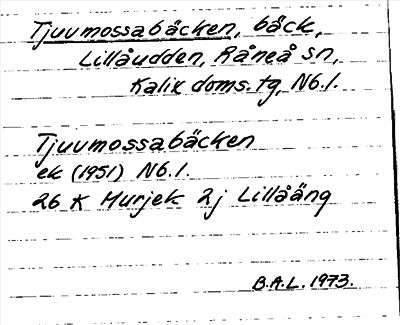 Tjuvmossabäcken, bäck,
Lillåudden, Råneå sn,
Kalix doms.tg, N6.1.
Tjuvmossabäcken
ek (1951) N6.1.
26 K Murjek 2j Lillåäng
B.A.L. 1973.